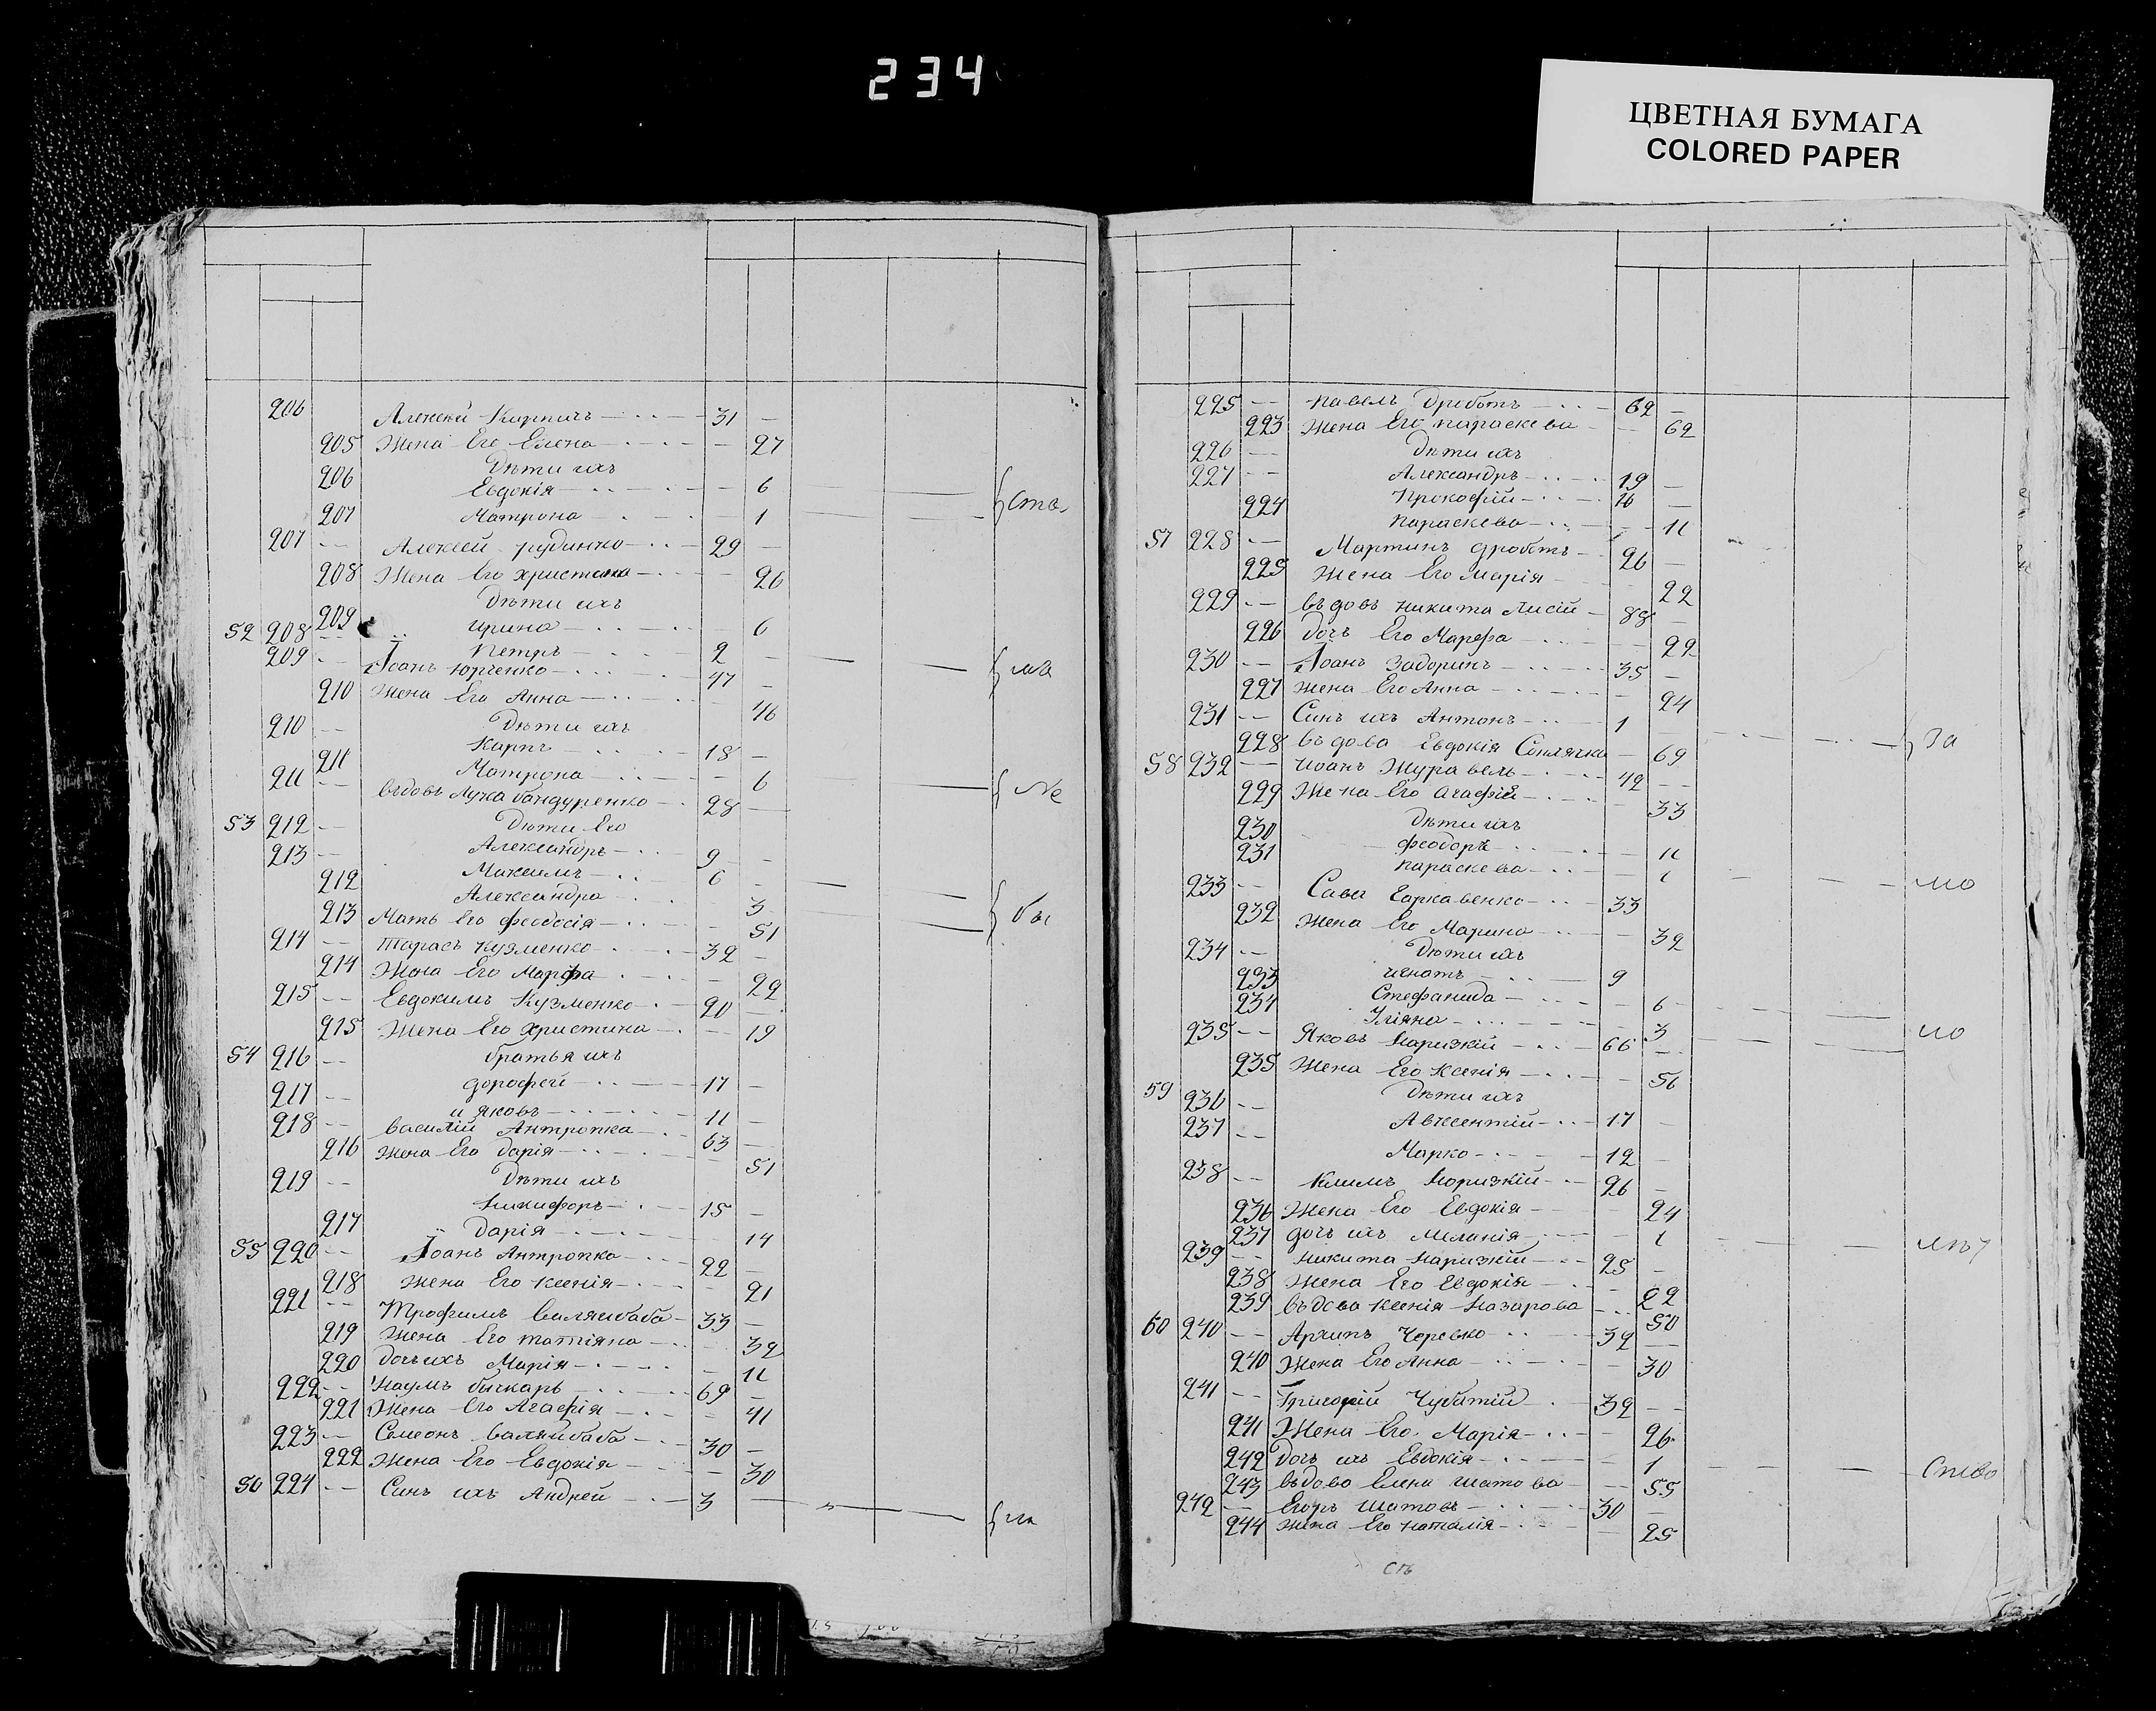 234
ЦВЕТНАЯ БУМАГА
COLORED PAPER
206 Алексей Кирпичъ 31
205 Жена Его Елена 27
Дѣти ихъ
206 Евдокія 6
207 Матрона 1
207 Алексей рудинко 29
208 Жена Его христина 26
Дѣти ихъ
209 ирина 6
52 208 Петръ 2
209 Іоанъ Юрченко 47
210 Жена Его Анна 46
Дѣти ихъ
210 Карпъ 18
211 Матрона 6
211 вѣдовъ Лука бандуренко 28
Дѣти Его
53 212 Александръ 9
213 Максимъ 6
212 Александра 3
213 Мать Его феодосія 51
214 Тарасъ Кузменко 32
214 Жена Его Марфа 22
215 Евдокимъ Кузменко 20
215 Жена Его христина 19
братья ихъ
54 216 дорофей 17
217 и яковъ 11
218 василій Антропка 63
216 жена Его дарія 51
Дѣти ихъ
219 Никифоръ 15
217 дарія 14
55 220 Іоанъ Антропка 22
218 жена Его ксенія 21
221 Трофимъ валяибаба 33
219 жена Его татіяна 32
220 дочь ихъ Марія 11
222 Наумъ бычкарь 69
221 Жена Его Агафія 41
223 Семеонъ валяйбаба 30
222 Жена Его Евдокія 30
50 224 Синъ ихъ Андрей 3
225 павелъ дроботъ 62
223 Жена Его параскева 62
Дѣти ихъ
226 Александръ 19
227 Прокофій 16
224 параскева 11
57 228 Мартинъ дроботъ 26
225 Жена Его Марія 22
229 вѣдовъ никита Лисій 88
226 дочь Его Марфа 22
230 Іоанъ Задоринъ 35
227 жена Его Анна 24
231 Синъ ихъ Антонъ 1
За
228 вѣдова Евдокія 69
58 232 Иоанъ Журавель 42
229 Жена Его агафія 33
Дѣти ихъ
230 феодоръ 11
231 параскева 1
но
233 Сава Гаркавенко 33
232 Жена Его Марина 32
Дѣти ихъ
234 игнатъ 9
233 Стефанида 6
234 Уліяна 3
но
235 Яковъ Наризкій 66
235 Жена Его Ксенія 56
Дѣти ихъ
59 236 Авксентій 17
237 Марко 12
238 Климъ Норизкій 26
236 Жена Его Евдокія 24
237 дочь ихъ Меланія 1
239 никита наризкій 25
238 Жена Его Евдокія 22
239 вѣдова ксенія Назарова 50
60 240 Архипъ Черевко 32
240 Жена Его Анна 30
241 Григорій Чубатій 32
241 Жена Его Марія 26
242 дочь ихъ Евдокія 1
243 вѣдово Елена шатова 55
242 Егоръ шатовъ 30
244 жена Его наталія 25